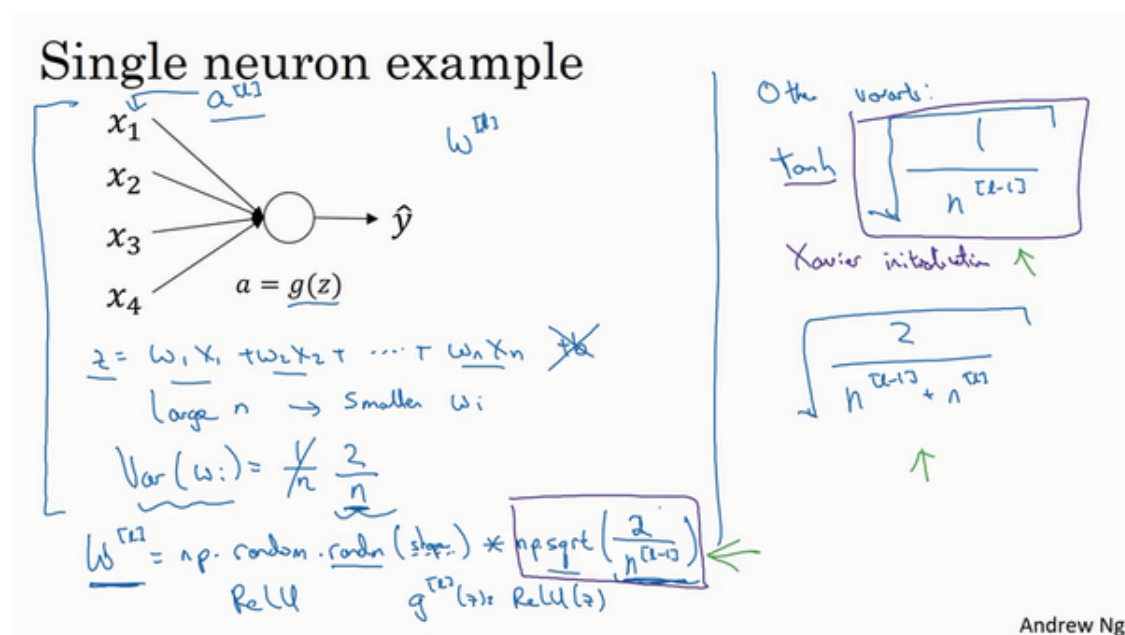 Single neuron example
a^[l]
x₁
x₂
x₃
x₄
ŷ
a = g(z)
w^[l]
z = w₁x₁ + w₂x₂ + ... + wₙxₙ +b
large n → smaller wᵢ
Var(wᵢ) = 1/n 2/n
W^[l] = np.random.randn(shape) * np.sqrt(2/n^[l-1])
ReLU g^[l](z) = ReLU(z)
Other variants:
tanh √(1/n^[l-1])
Xavier initialization
√(2/(n^[l-1] + n^[l]))
Andrew Ng